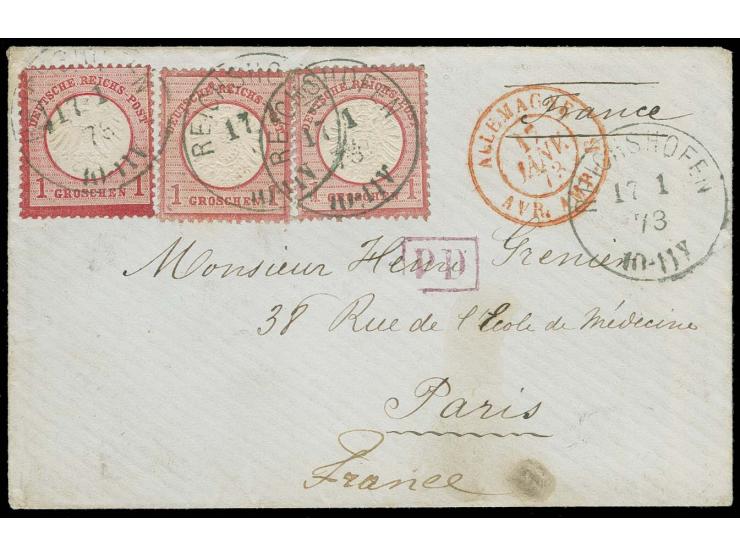 DEUTSCHE REICHS-POST
1 GROSCHEN 1
DEUTSCHE REICHS-POST
1 GROSCHEN
DEUTSCHE REICHS-POST
GROSCHEN 1
17 1
10-11V
17 1
17 1
10-11V
France
ALLEMAGNE
17
JANV.
73
AVR.
REICHSHOFEN
17 1
73
10-11V
PD
Monsieur Henri Grenier
38 Rue de l'Ecole de Médecine
Paris
France